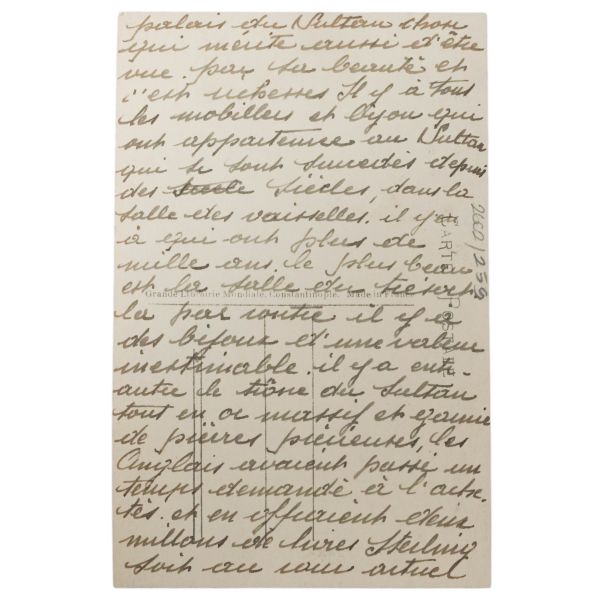 palais du Sultan chose
qui mérite aussi d'être
vue par sa beauté et
c'est richesses Il y a tous
les mobiliers et bijou qui
ont appartenue au Sultan
qui se sont succedés depuis
des Siècles, dans la
salle des vaisselles. il y a
à qui ont plus de
mille ans. le plus beau
est la salle du tresort
Grande Librairie Mondiale, Constantinople. Made in France
la par contre il y a
des bijoux d'une valeur
inestimable. il y a ent-
autre le trône du Sultan
tout en or massif et garnie
de pièrres pierieuses, les
Anglais avaient passé un
temps demandé à l'ache-
tés. et en offraient deux
millons de livres Sterling
soit au cour actuel
CARTE POSTALE
2002/259